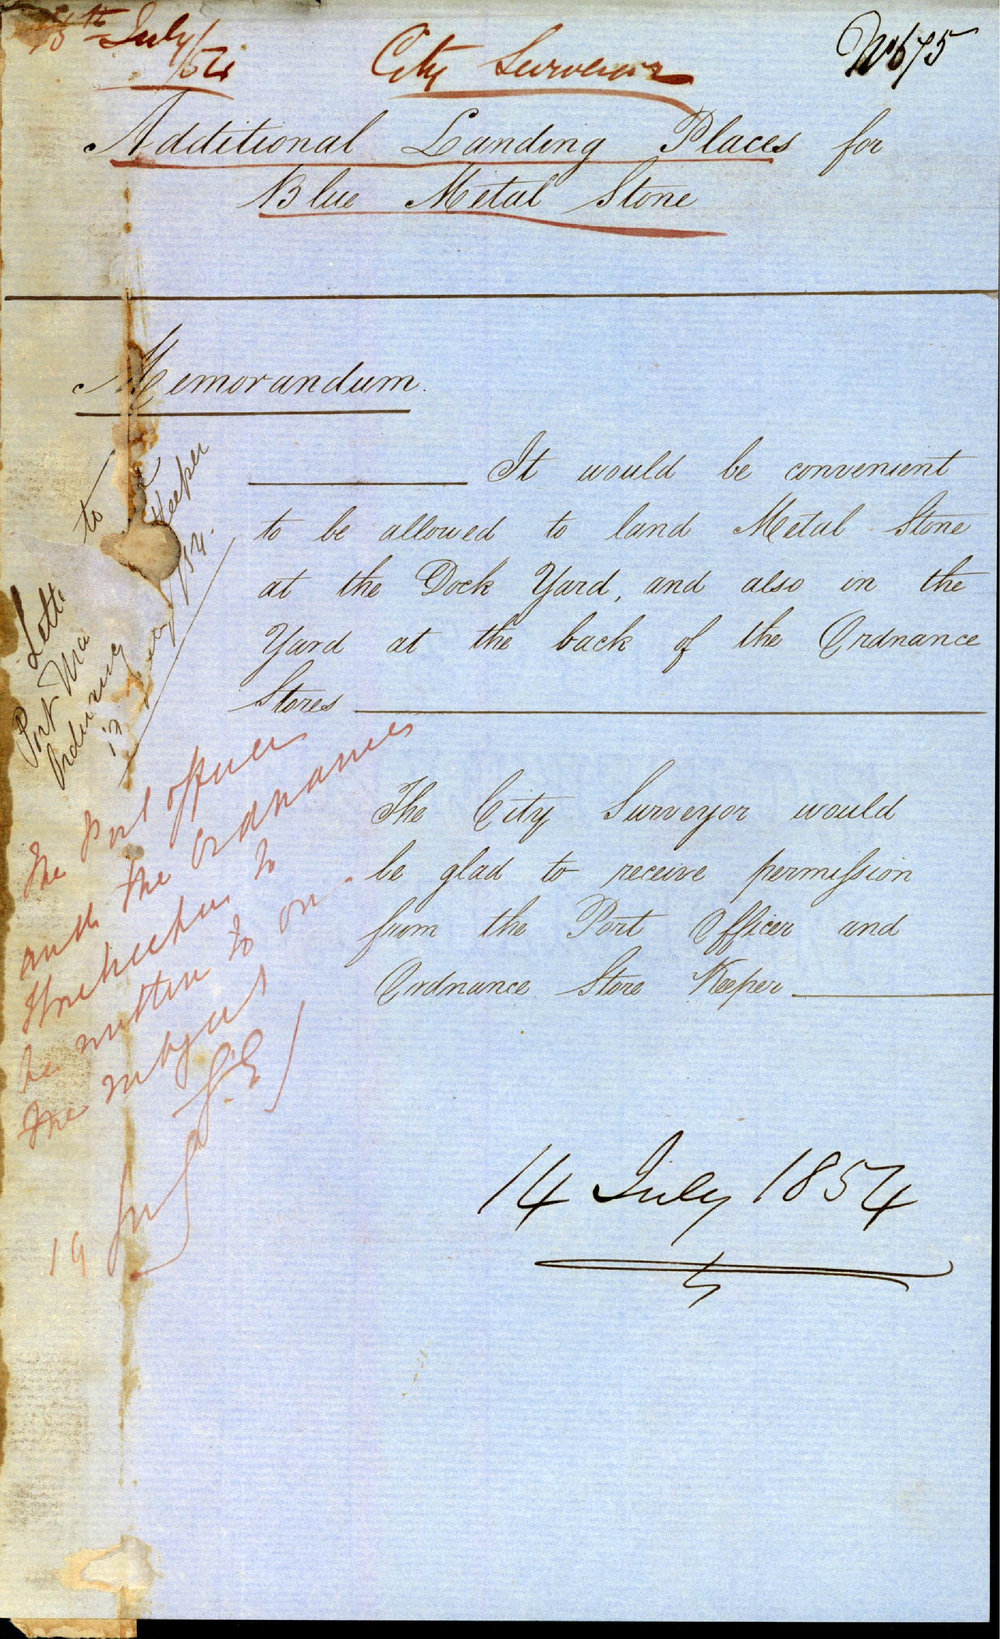 15th July/54
City Surveyor
No 675
Additional Landing Places for
Blue Metal Stone
Memorandum.
It would be convenient
to be allowed to land Metal Stone
at the Dock Yard, and also in the
Yard at the back of the Ordnance
Stores
The City Surveyor would
be glad to receive permission
from the Port Officer and
Ordnance Store Keeper
14 July 1854
Lette to
Port Ma
Ordinance Keeper
/54.
The Port officer
and the Ordnances
Storekeeper to
be written to on
the subject
19 July